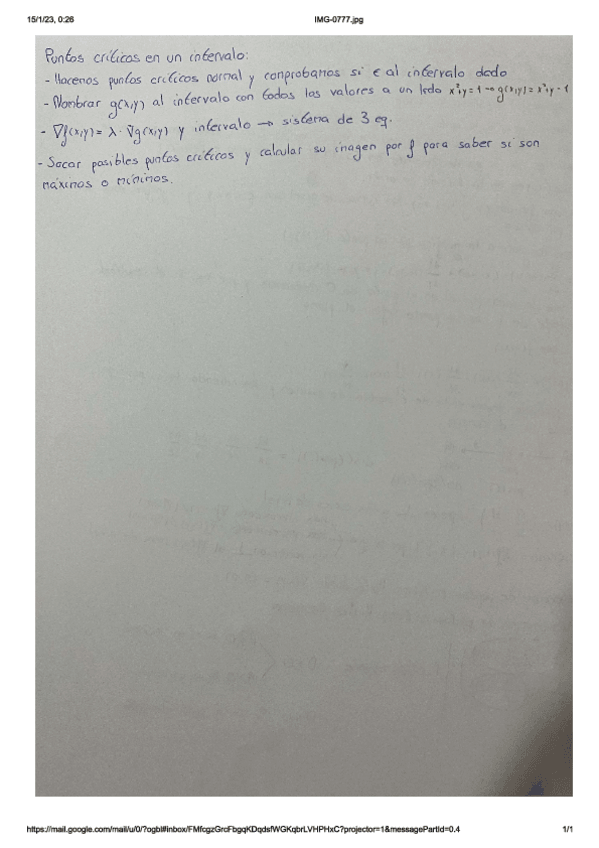 15/1/23, 0:26 IMG-0777.jpg
Puntos críticos en un intervalo:
- Hacemos puntos críticos normal y comprobamos si ∈ al intervalo dado
- Nombrar g(x,y) al intervalo con todos los valores a un lado x²+y=1 → g(x,y)=x²+y-1
- ∇f(x,y) = λ · ∇g(x,y) y intervalo → sistema de 3 eq.
- Sacar posibles puntos críticos y calcular su imagen por f para saber si son
máximos o mínimos.
https://mail.google.com/mail/u/0/?ogbl#inbox/FMfcgzGrcFbgqKDqdsfWGKqbrLVHPHxC?projector=1&messagePartId=0.4 1/1